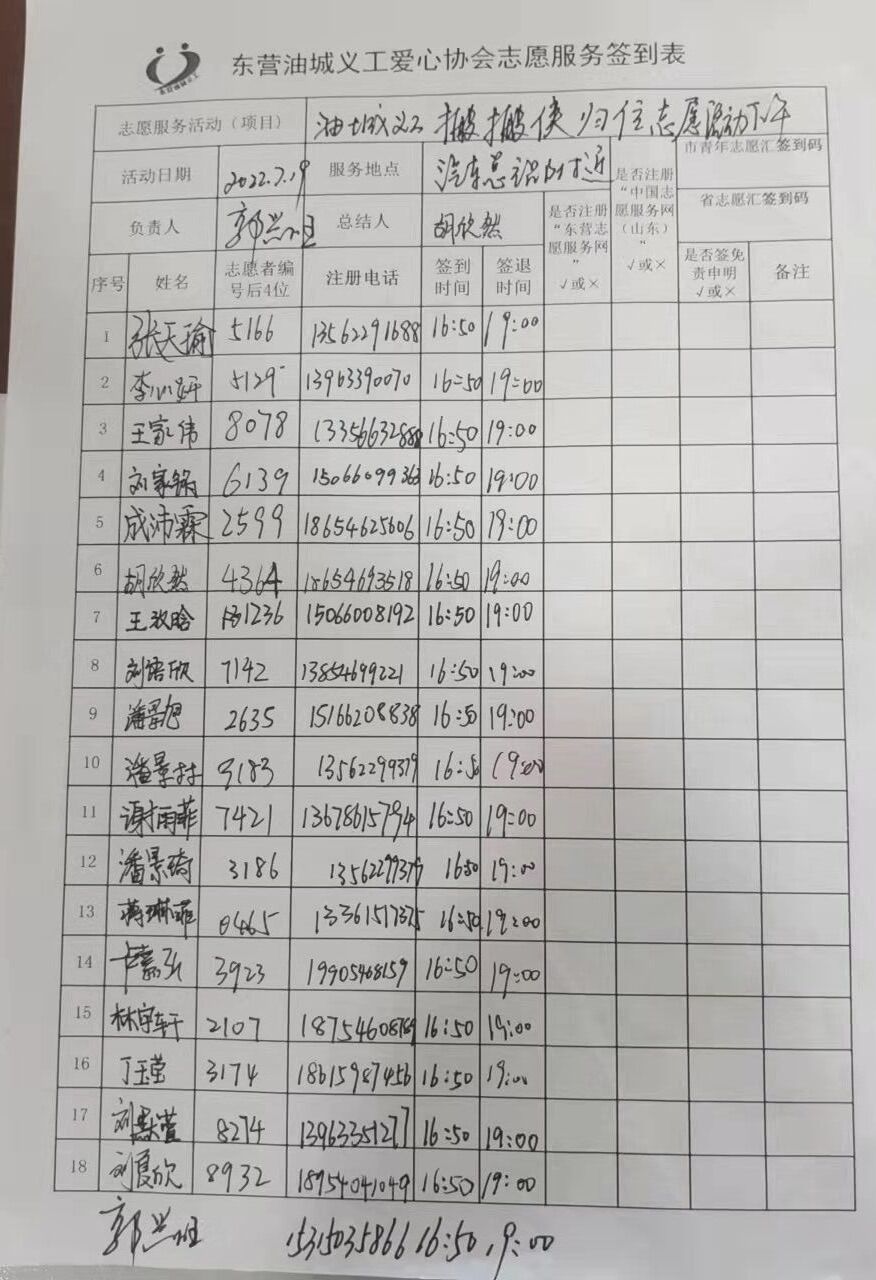 东营油城义工爱心协会志愿服务签到表
东营油城义工
志愿服务活动（项目） 油城义工 搬搬侠归位志愿活动下午
活动日期 2022.7.19 服务地点 汽车总站附近 是否注册“中国志愿服务网（山东）” √或× 市青年志愿汇签到码
负责人 郭兴旺 总结人 胡欣然 是否注册“东营志愿服务网” √或× 省志愿汇签到码
序号 姓名 志愿者编号后4位 注册电话 签到时间 签退时间 是否签免责申明 √或× 备注
1 张天瑜 5166 13562291688 16:50 19:00
2 李心妍 5129 13963390070 16:50 19:00
3 王家伟 8078 16:50 19:00
4 刘家锅 6139 15066099363 16:50 19:00
5 成沛霖 2599 18654625606 16:50 19:00
6 胡欣然 4364 18654693518 16:50 19:00
7 王孜晗 1236 15066008192 16:50 19:00
8 刘语欣 7142 13854699221 16:50 19:00
9 潘昱旭 2635 15166208838 16:50 19:00
10 潘景 3183 13562299379 16:50 19:00
11 谢雨菲 7421 13678615794 16:50 19:00
12 潘景琦 3186 13562299379 1650 19:00
13 蒋琳菲 0465 13361517375 16:50 19:00
14 卞嘉弘 3923 19905468159 16:50 19:00
15 林宇轩 2107 18754608789 16:50 19:00
16 丁玉莹 3174 18615987456 16:50 19:00
17 刘萱 8274 13963351277 16:50 19:00
18 刘夏欣 8932 18954041049 16:50 19:00
郭兴旺 15315035866 16:50 19:00